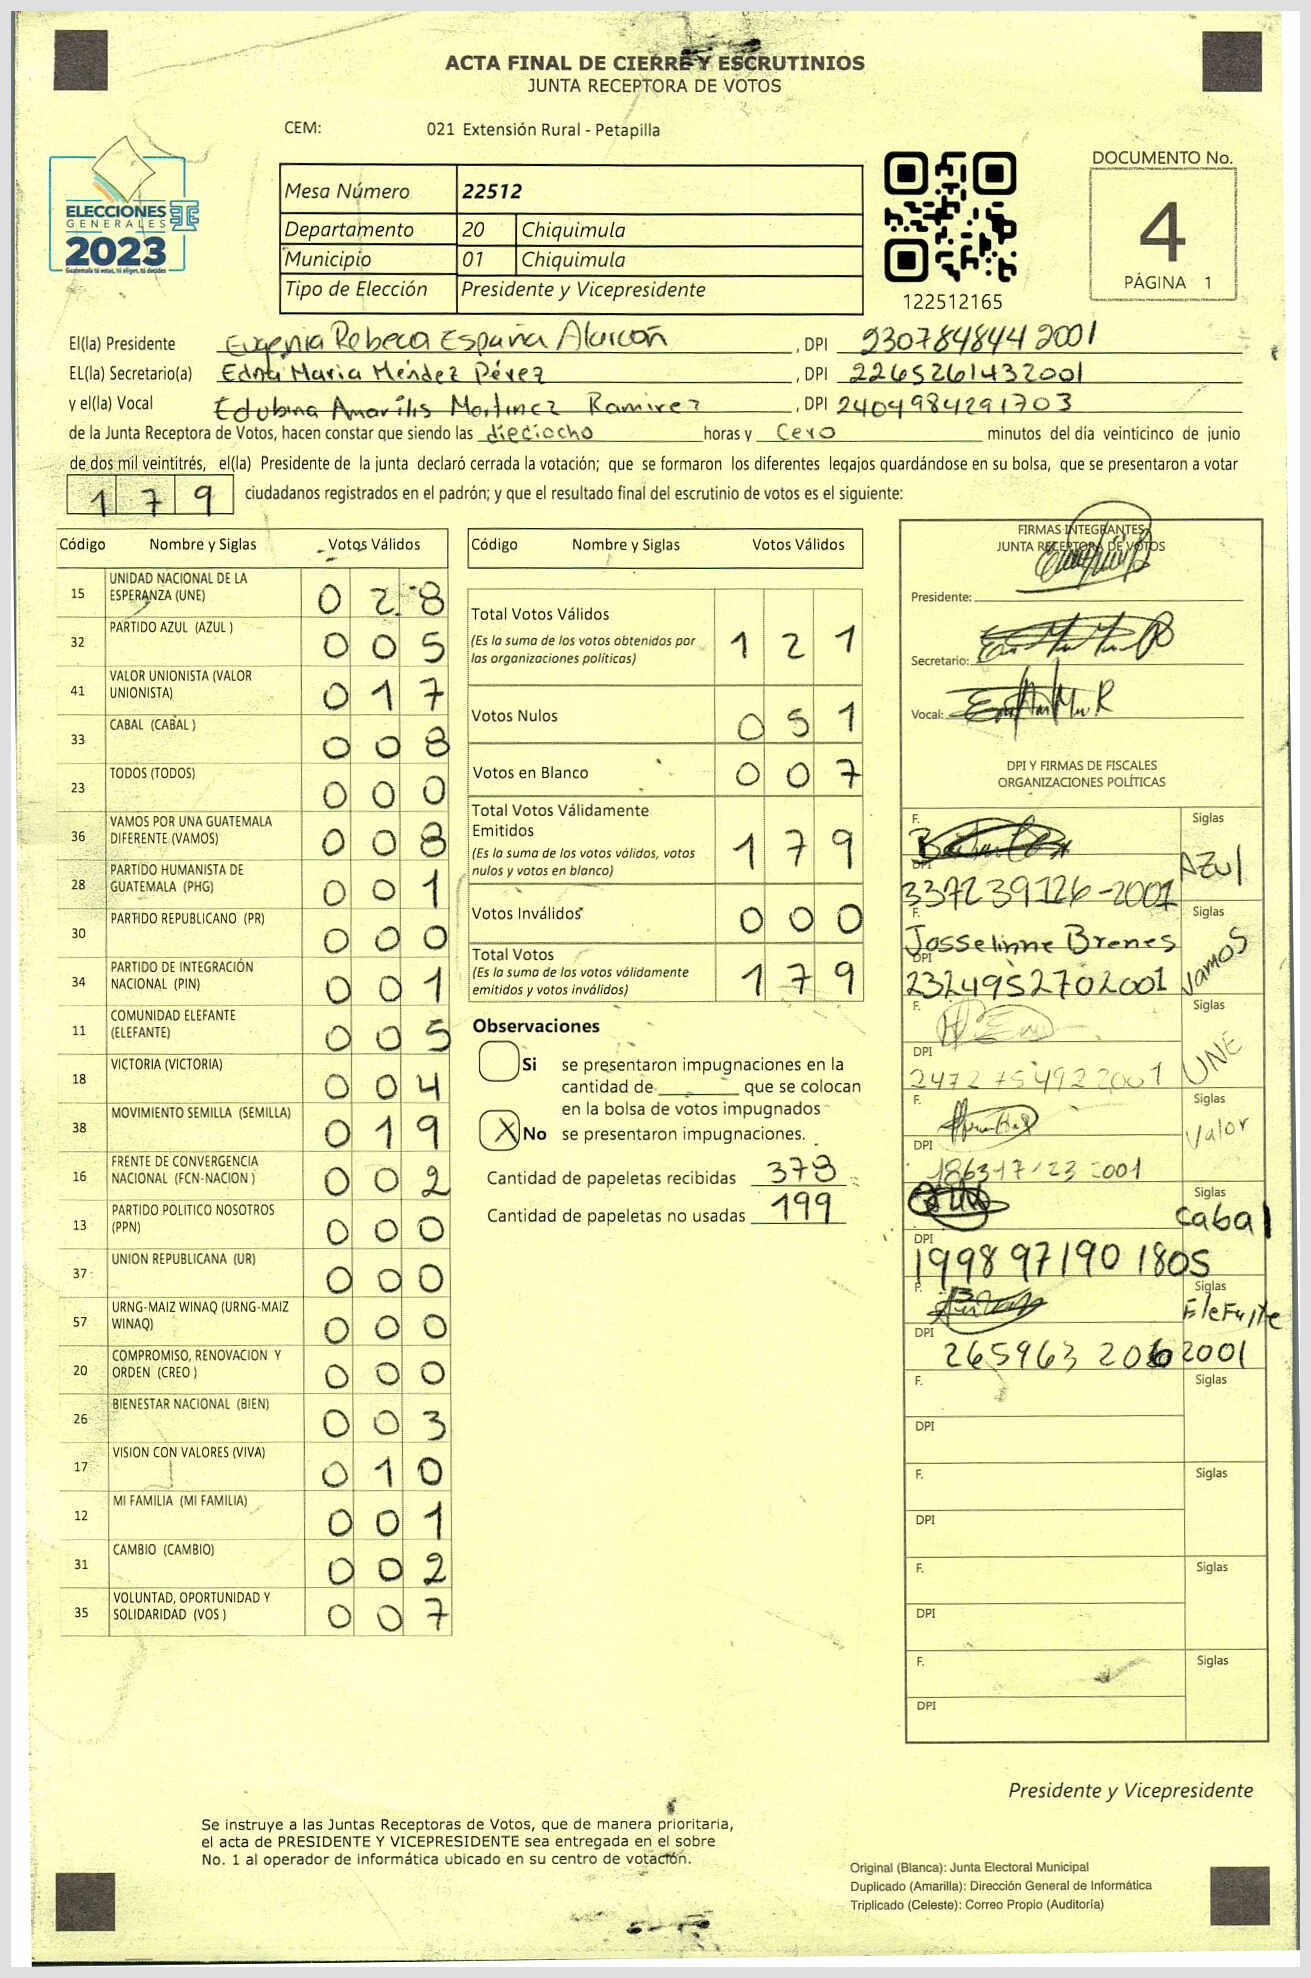 ACTA FINAL DE CIERRE Y ESCRUTINIOS
JUNTA RECEPTORA DE VOTOS
CEM: 021 Extensión Rural - Petapilla
ELECCIONES
GENERALES
2023
Guatemala tú votas, tú eliges, tú decides
Mesa Número 22512
Departamento 20 Chiquimula
Municipio 01 Chiquimula
Tipo de Elección Presidente y Vicepresidente
122512165
DOCUMENTO No.
4
PÁGINA 1
El(la) Presidente Eugenia Rebeca España Alarcón , DPI 2307848442001
EL(la) Secretario(a) Edna Maria Méndez Pérez , DPI 2265261432001
y el(la) Vocal Edubina Amarilis Martinez Ramirez , DPI 2404984291703
de la Junta Receptora de Votos, hacen constar que siendo las dieciocho horas y Cero minutos del día veinticinco de junio
de dos mil veintitrés, el(la) Presidente de la junta declaró cerrada la votación; que se formaron los diferentes legajos guardándose en su bolsa, que se presentaron a votar
179 ciudadanos registrados en el padrón; y que el resultado final del escrutinio de votos es el siguiente:
Código Nombre y Siglas Votos Válidos
15 UNIDAD NACIONAL DE LA ESPERANZA (UNE) 0 2 8
32 PARTIDO AZUL (AZUL ) 0 0 5
41 VALOR UNIONISTA (VALOR UNIONISTA) 0 1 7
33 CABAL (CABAL ) 0 0 8
23 TODOS (TODOS) 0 0 0
36 VAMOS POR UNA GUATEMALA DIFERENTE (VAMOS) 0 0 8
28 PARTIDO HUMANISTA DE GUATEMALA (PHG) 0 0 1
30 PARTIDO REPUBLICANO (PR) 0 0 0
34 PARTIDO DE INTEGRACIÓN NACIONAL (PIN) 0 0 1
11 COMUNIDAD ELEFANTE (ELEFANTE) 0 0 5
18 VICTORIA (VICTORIA) 0 0 4
38 MOVIMIENTO SEMILLA (SEMILLA) 0 1 9
16 FRENTE DE CONVERGENCIA NACIONAL (FCN-NACION ) 0 0 2
13 PARTIDO POLITICO NOSOTROS (PPN) 0 0 0
37 UNION REPUBLICANA (UR) 0 0 0
57 URNG-MAIZ WINAQ (URNG-MAIZ WINAQ) 0 0 0
20 COMPROMISO, RENOVACION Y ORDEN (CREO ) 0 0 0
26 BIENESTAR NACIONAL (BIEN) 0 0 3
17 VISION CON VALORES (VIVA) 0 1 0
12 MI FAMILIA (MI FAMILIA) 0 0 1
31 CAMBIO (CAMBIO) 0 0 2
35 VOLUNTAD, OPORTUNIDAD Y SOLIDARIDAD (VOS ) 0 0 7
Código Nombre y Siglas Votos Válidos
Total Votos Válidos 1 2 1
(Es la suma de los votos obtenidos por
las organizaciones políticas)
Votos Nulos 0 5 1
Votos en Blanco 0 0 7
Total Votos Válidamente
Emitidos 1 7 9
(Es la suma de los votos válidos, votos
nulos y votos en blanco)
Votos Inválidos 0 0 0
Total Votos 1 7 9
(Es la suma de los votos válidamente
emitidos y votos inválidos)
Observaciones
Si se presentaron impugnaciones en la
cantidad de que se colocan
en la bolsa de votos impugnados
X No se presentaron impugnaciones.
Cantidad de papeletas recibidas 378
Cantidad de papeletas no usadas 199
FIRMAS INTEGRANTES
JUNTA RECEPTORA DE VOTOS
Presidente:
Secretario:
Vocal:
DPI Y FIRMAS DE FISCALES
ORGANIZACIONES POLÍTICAS
F. Siglas
DPI 337239126-2001 AZUL
F. Josselinne Brenes Siglas
DPI 2324952702001 Vamos
F. Siglas
DPI 2472 75492 2001 UNE
F. Siglas
DPI Valor
F. Siglas
DPI 1998 97190 1805 Cabal
F. Siglas
DPI 265963 206 2001 EleFante
F. Siglas
DPI
F. Siglas
DPI
F. Siglas
DPI
F. Siglas
DPI
Presidente y Vicepresidente
Se instruye a las Juntas Receptoras de Votos, que de manera prioritaria,
el acta de PRESIDENTE Y VICEPRESIDENTE sea entregada en el sobre
No. 1 al operador de informática ubicado en su centro de votación.
Original (Blanca): Junta Electoral Municipal
Duplicado (Amarilla): Dirección General de Informática
Triplicado (Celeste): Correo Propio (Auditoría)